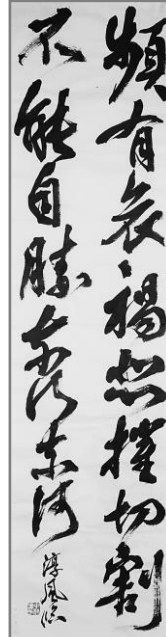 頻有哀禍悲摧切割
不能自勝奈何奈何
淳風臨